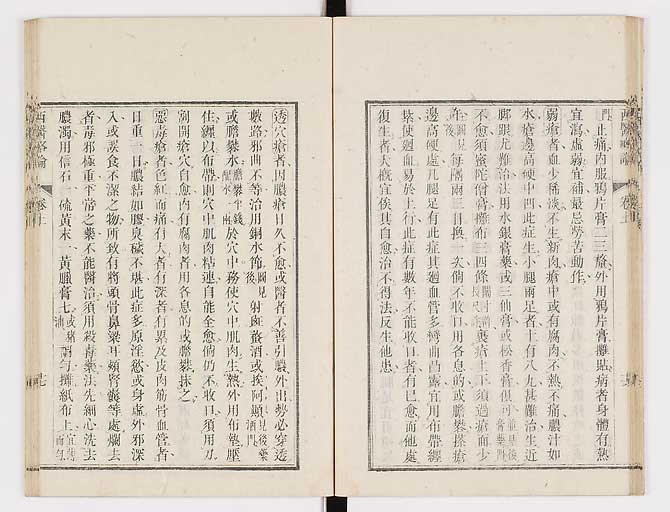 門止痛內服鴉片膏二三㿉外用鴉片膏攤貼病者身體有熱
宜瀉虛弱宜補最忌勞苦動作
弱瘡者血少稀淡不生新肉瘡中或有腐肉不熱不痛膿汁如
水瘡邊高硬中凹此症生小腿兩足者十有八九甚難治生近
脚跟尤難治法用水銀膏藥或三仙膏或松香膏俱可
不愈須蜜陀僧膏攤布三四條裹瘡上下須過瘡面少
許每隔兩三日換一次倘不收口用各息的或膽礬搽瘡
邊高硬處凡腿足有此症其迴血管多彎曲凸露宜用布帶纏
紮使迴血易於上行此症有數年不能收口者有已愈而他處
復生者大概宜俟其自愈治不得法反生他患
透穴瘡者因膿瘡日久不愈或醫者不善引膿外出勢必穿透
數路邪曲不等治用銅水節射𥂁酒或挨阿顯
或膽礬水於穴中務使穴中肌肉生熱外用布墊壓
住纏以布帶則穴中肌肉粘連自能全愈倘仍不收口須用刀
割開瘡穴自愈內有腐肉者用各息的或膽礬抹之
惡毒瘡者色紅而痛有大者有深者有累及皮肉筋骨血管者
日重一日膿結如膠臭穢不堪此症多原淫慾或身虛外邪深
入或誤食不潔之物所致有將頭骨鼻梁耳頰腎囊等處爛去
者毒邪極重平常之藥不能醫治須用殺毒藥法先細心洗去
膿濁用信石一硫黃末一黃臘膏七攤紙布上
西醫略論 卷上